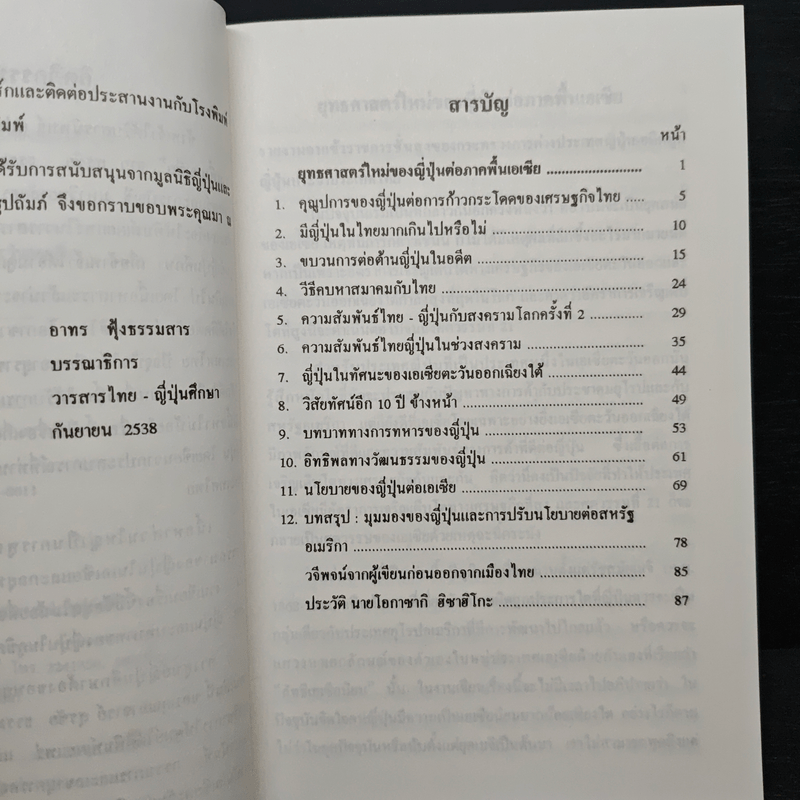 และติดต่อประสานงานกับโรงพิมพ์
รับการสนับสนุนจากมูลนิธิญี่ปุ่นและ
จึงขอกราบขอบพระคุณมา ณ
อาทร ฟุ้งธรรมสาร
บรรณาธิการ
วารสารไทย - ญี่ปุ่นศึกษา
กันยายน 2538
สารบัญ
หน้า
ยุทธศาสตร์ใหม่ของญี่ปุ่นต่อภาคพื้นเอเซีย ........................ 1
1. คุณูปการของญี่ปุ่นต่อการก้าวกระโดดของเศรษฐกิจไทย ..... 5
2. มีญี่ปุ่นในไทยมากเกินไปหรือไม่ ........................ 10
3. ขบวนการต่อต้านญี่ปุ่นในอดีต ........................ 15
4. วีธีคบหาสมาคมกับไทย ........................ 24
5. ความสัมพันธ์ไทย - ญี่ปุ่นกับสงครามโลกครั้งที่ 2 ............ 29
6. ความสัมพันธ์ไทยญี่ปุ่นในช่วงสงคราม ........................ 35
7. ญี่ปุ่นในทัศนะของเอเซียตะวันออกเฉียงใต้ ........................ 44
8. วิสัยทัศน์อีก 10 ปี ข้างหน้า ........................ 49
9. บทบาททางการทหารของญี่ปุ่น ........................ 53
10. อิทธิพลทางวัฒนธรรมของญี่ปุ่น ........................ 61
11. นโยบายของญี่ปุ่นต่อเอเซีย ........................ 69
12. บทสรุป : มุมมองของญี่ปุ่นและการปรับนโยบายต่อสหรัฐ
อเมริกา ........................ 78
วจีพจน์จากผู้เขียนก่อนออกจากเมืองไทย ........................ 85
ประวัติ นายโอกาซากิ ฮิซาฮิโกะ ........................ 87